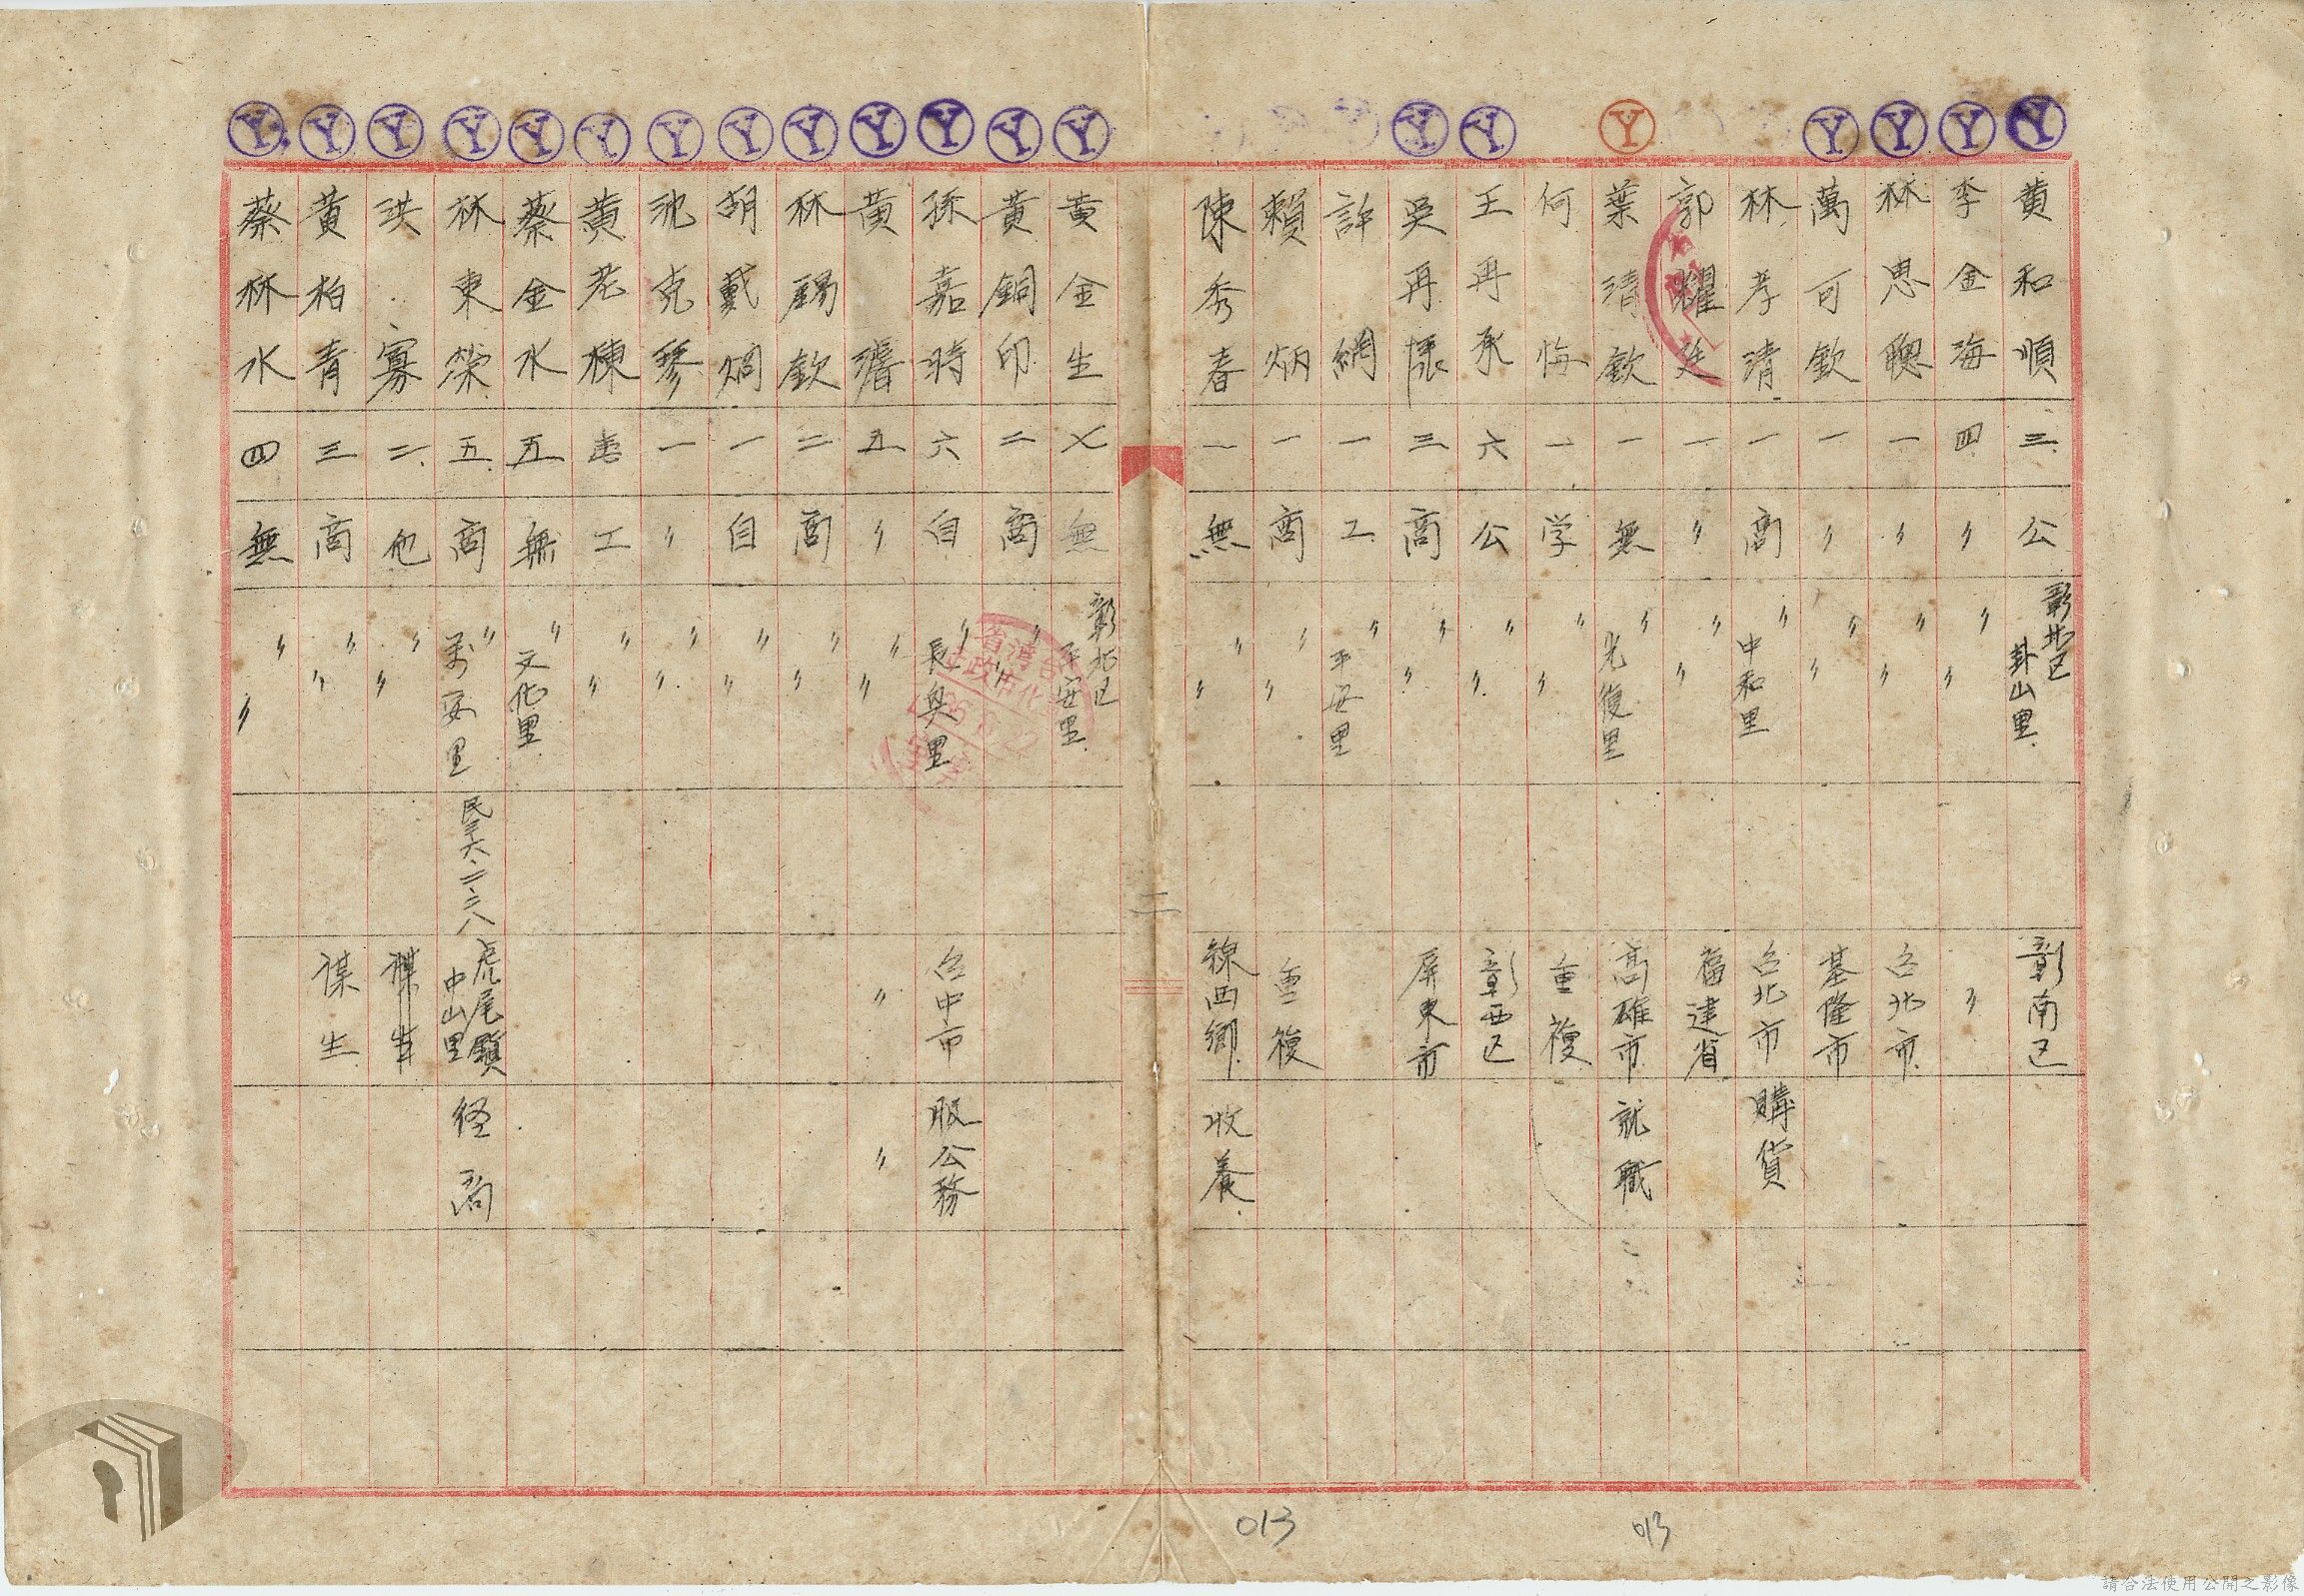 黄和順 三 公 彰北区卦山里 彰南区
李金海 四 〃 〃 〃 〃
林思聰 一 〃 〃 〃 台北市
萬可欽 一 〃 〃 〃 基隆市
林孝清 一 商 〃 中和里 台北市 購貨
郭耀廷 一 〃 〃 〃 福建省
葉清欽 一 無 〃 光復里 高雄市 就職
何悔 一 学 〃 〃 重複
王再承 六 公 〃 〃 彰西区
吳再張 三 商 〃 〃 屏東市
許網 一 工 〃 平安里
賴炳 一 商 〃 〃 重複
陳秀春 一 無 〃 〃 線西鄉 收養
二
黄金生 七 無 彰北区平安里
黄銅印 二 商 〃 〃
孫嘉時 六 自 〃 長興里 台中市 服公務
黄 五 〃 〃 〃 〃 〃
林錫欽 二 商 〃 〃
胡戴炯 一 自 〃 〃
沈克琴 一 〃 〃 〃
黄老棟 壱 工 〃 〃
蔡金水 五 無 〃 文化里
林東榮 五 商 〃 萬安里 民三六、二、二八 虎尾鎮中山里 経商
洪寡 二 他 〃 〃 謀生
黄柏青 三 商 〃 〃 謀生
蔡林水 四 無 〃 〃
Y Y Y Y Y Y Y Y Y Y Y Y Y Y Y Y Y Y Y Y
013
013
請合法使用公開之影像